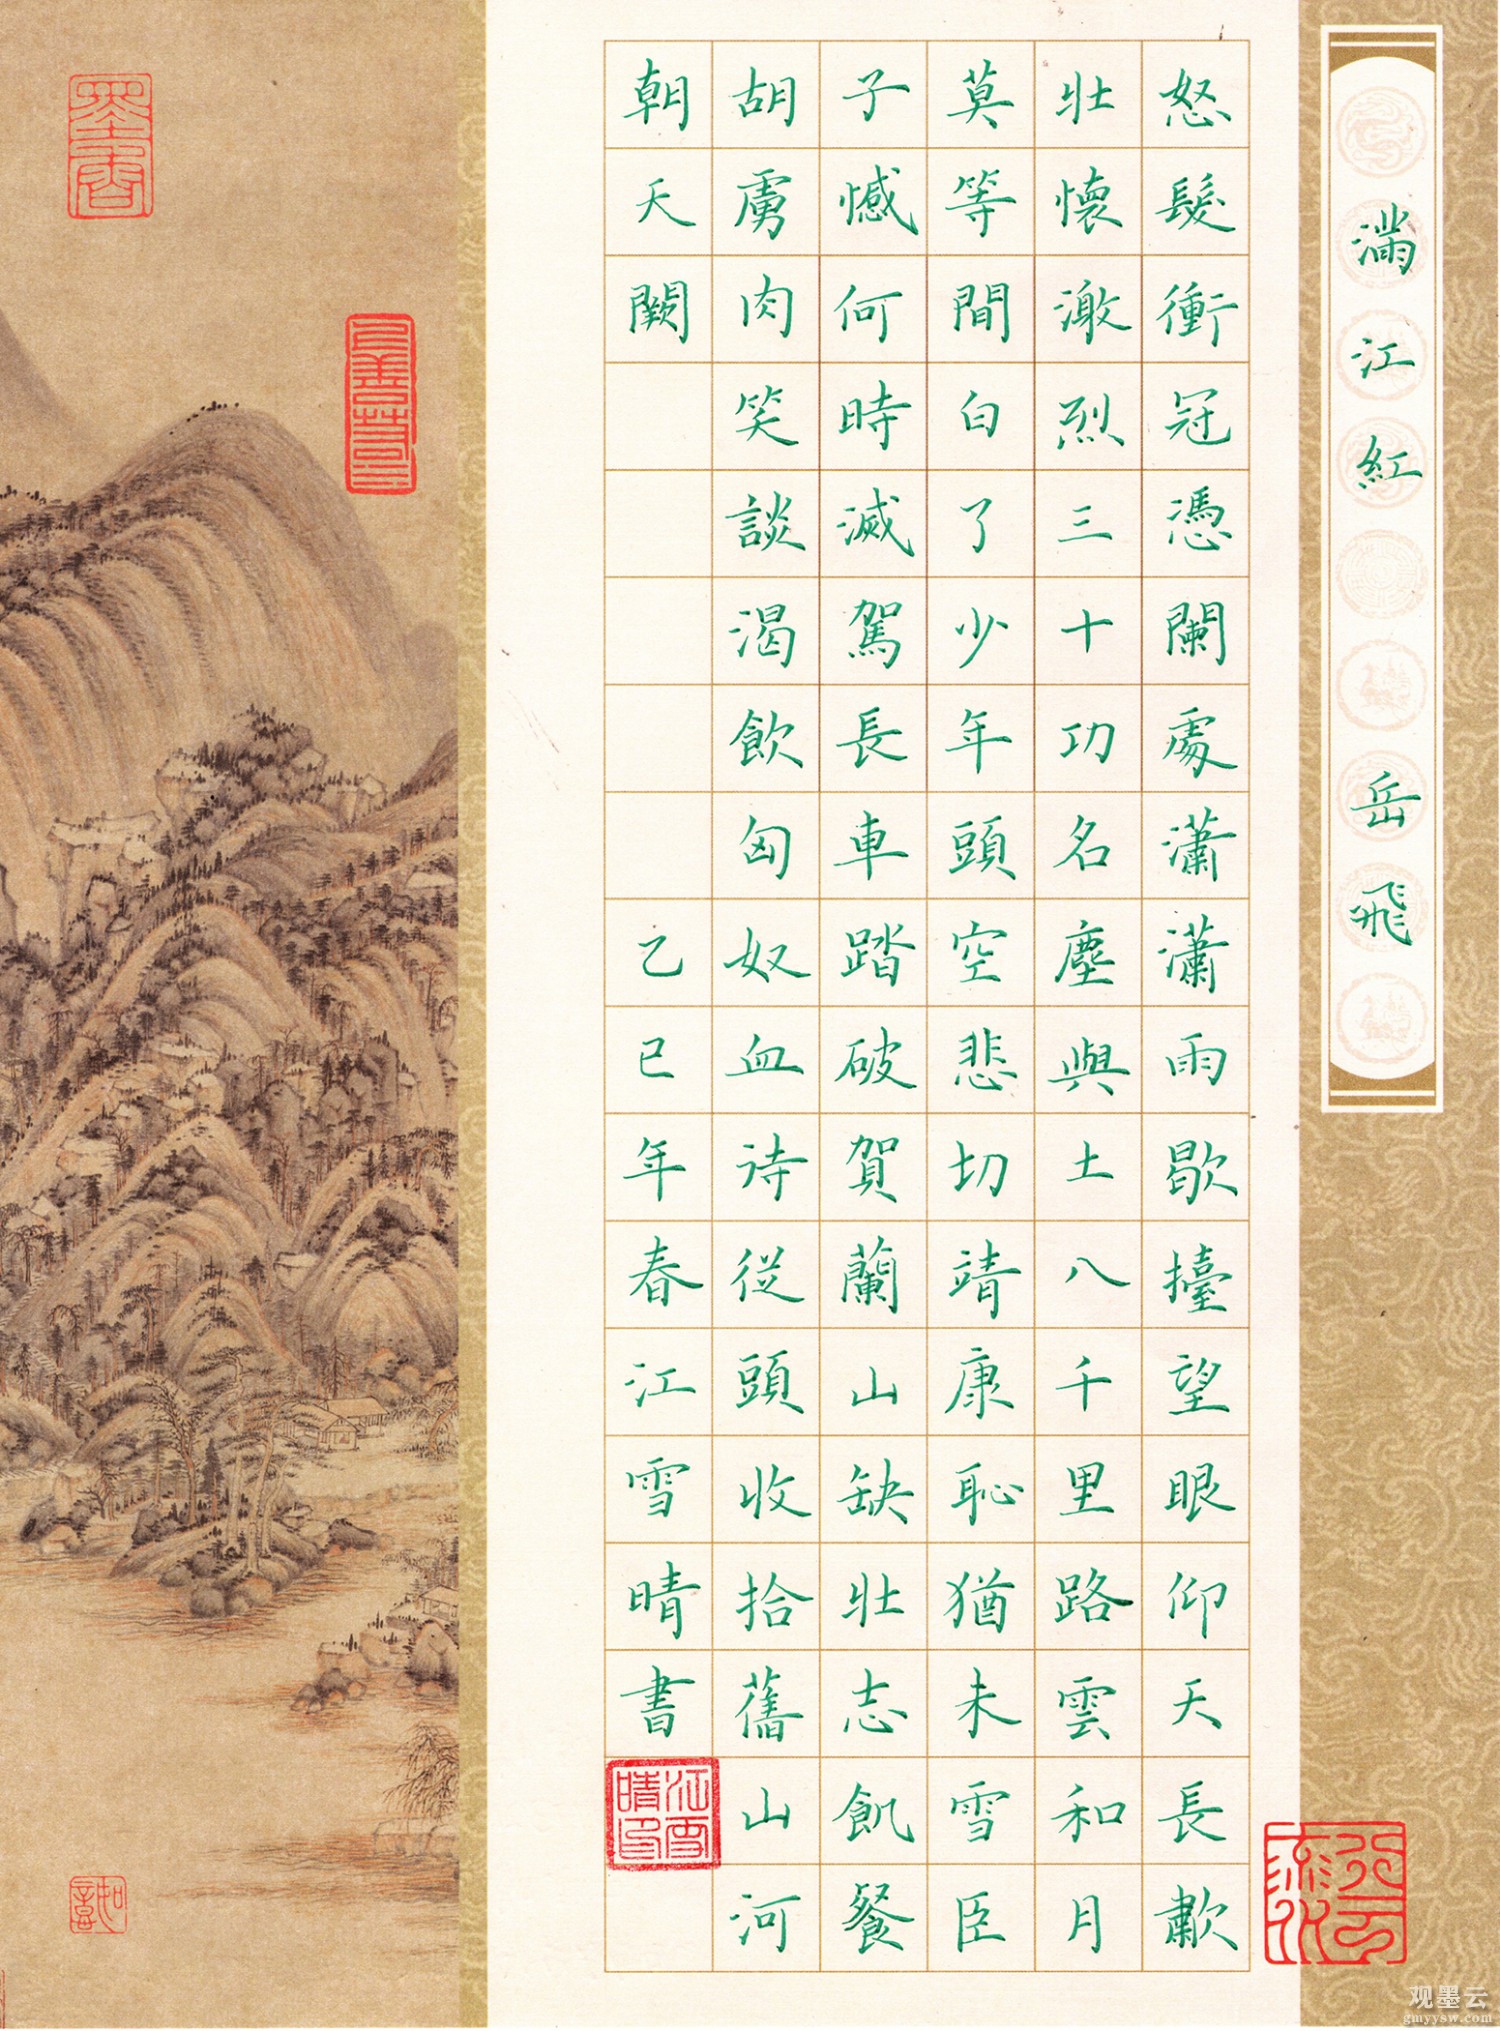 滿江紅 岳飛
怒髮衝冠憑闌處瀟瀟雨歇擡望眼仰天長歗
壯懷激烈三十功名塵與土八千里路雲和月
莫等間白了少年頭空悲切靖康恥猶未雪臣
子憾何時滅駕長車踏破賀蘭山缺壯志飢餐
胡虜肉笑談渴飲匈奴血待從頭收拾舊山河
朝天闕 乙巳年春江雪晴書
江雪晴印
行云流水
墨香
上善若水
如意
观墨云
gmyysw.com